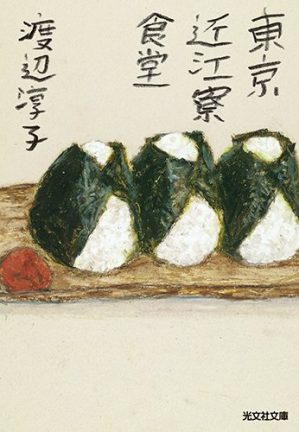 東京
近江寮
食堂
渡辺淳子
光文社文庫